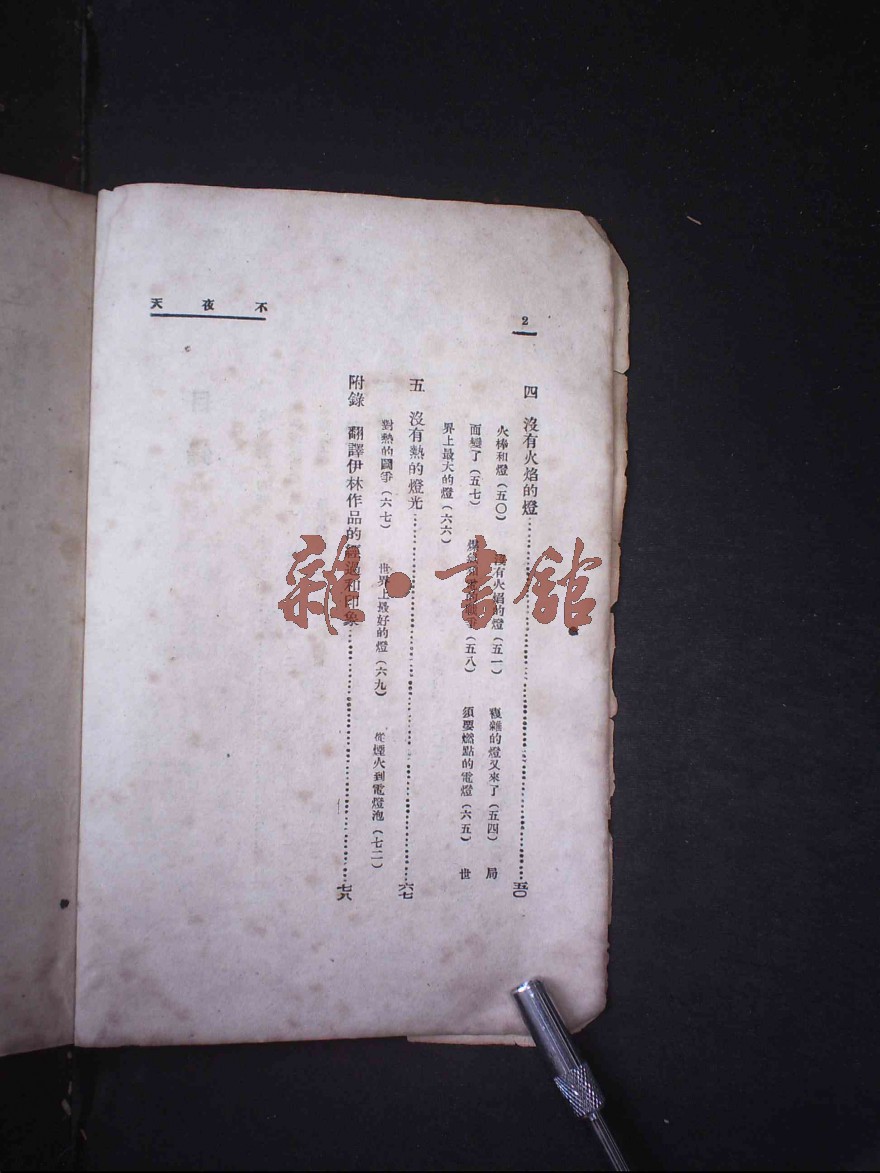 不夜天
2
四　沒有火焰的燈……五〇
火棒和燈（五〇）　有火焰的燈（五一）　複雜的燈又來了（五四）　局
面變了（五七）　（五八）　須要燃點的電燈（六五）　世
界上最大的燈（六六）
五　沒有熱的燈光……六七
對熱的鬪爭（六七）　世界上最好的燈（六九）　從煙火到電燈泡（七二）
附錄　翻譯伊林作品的經過和印象……七八
雜·書館